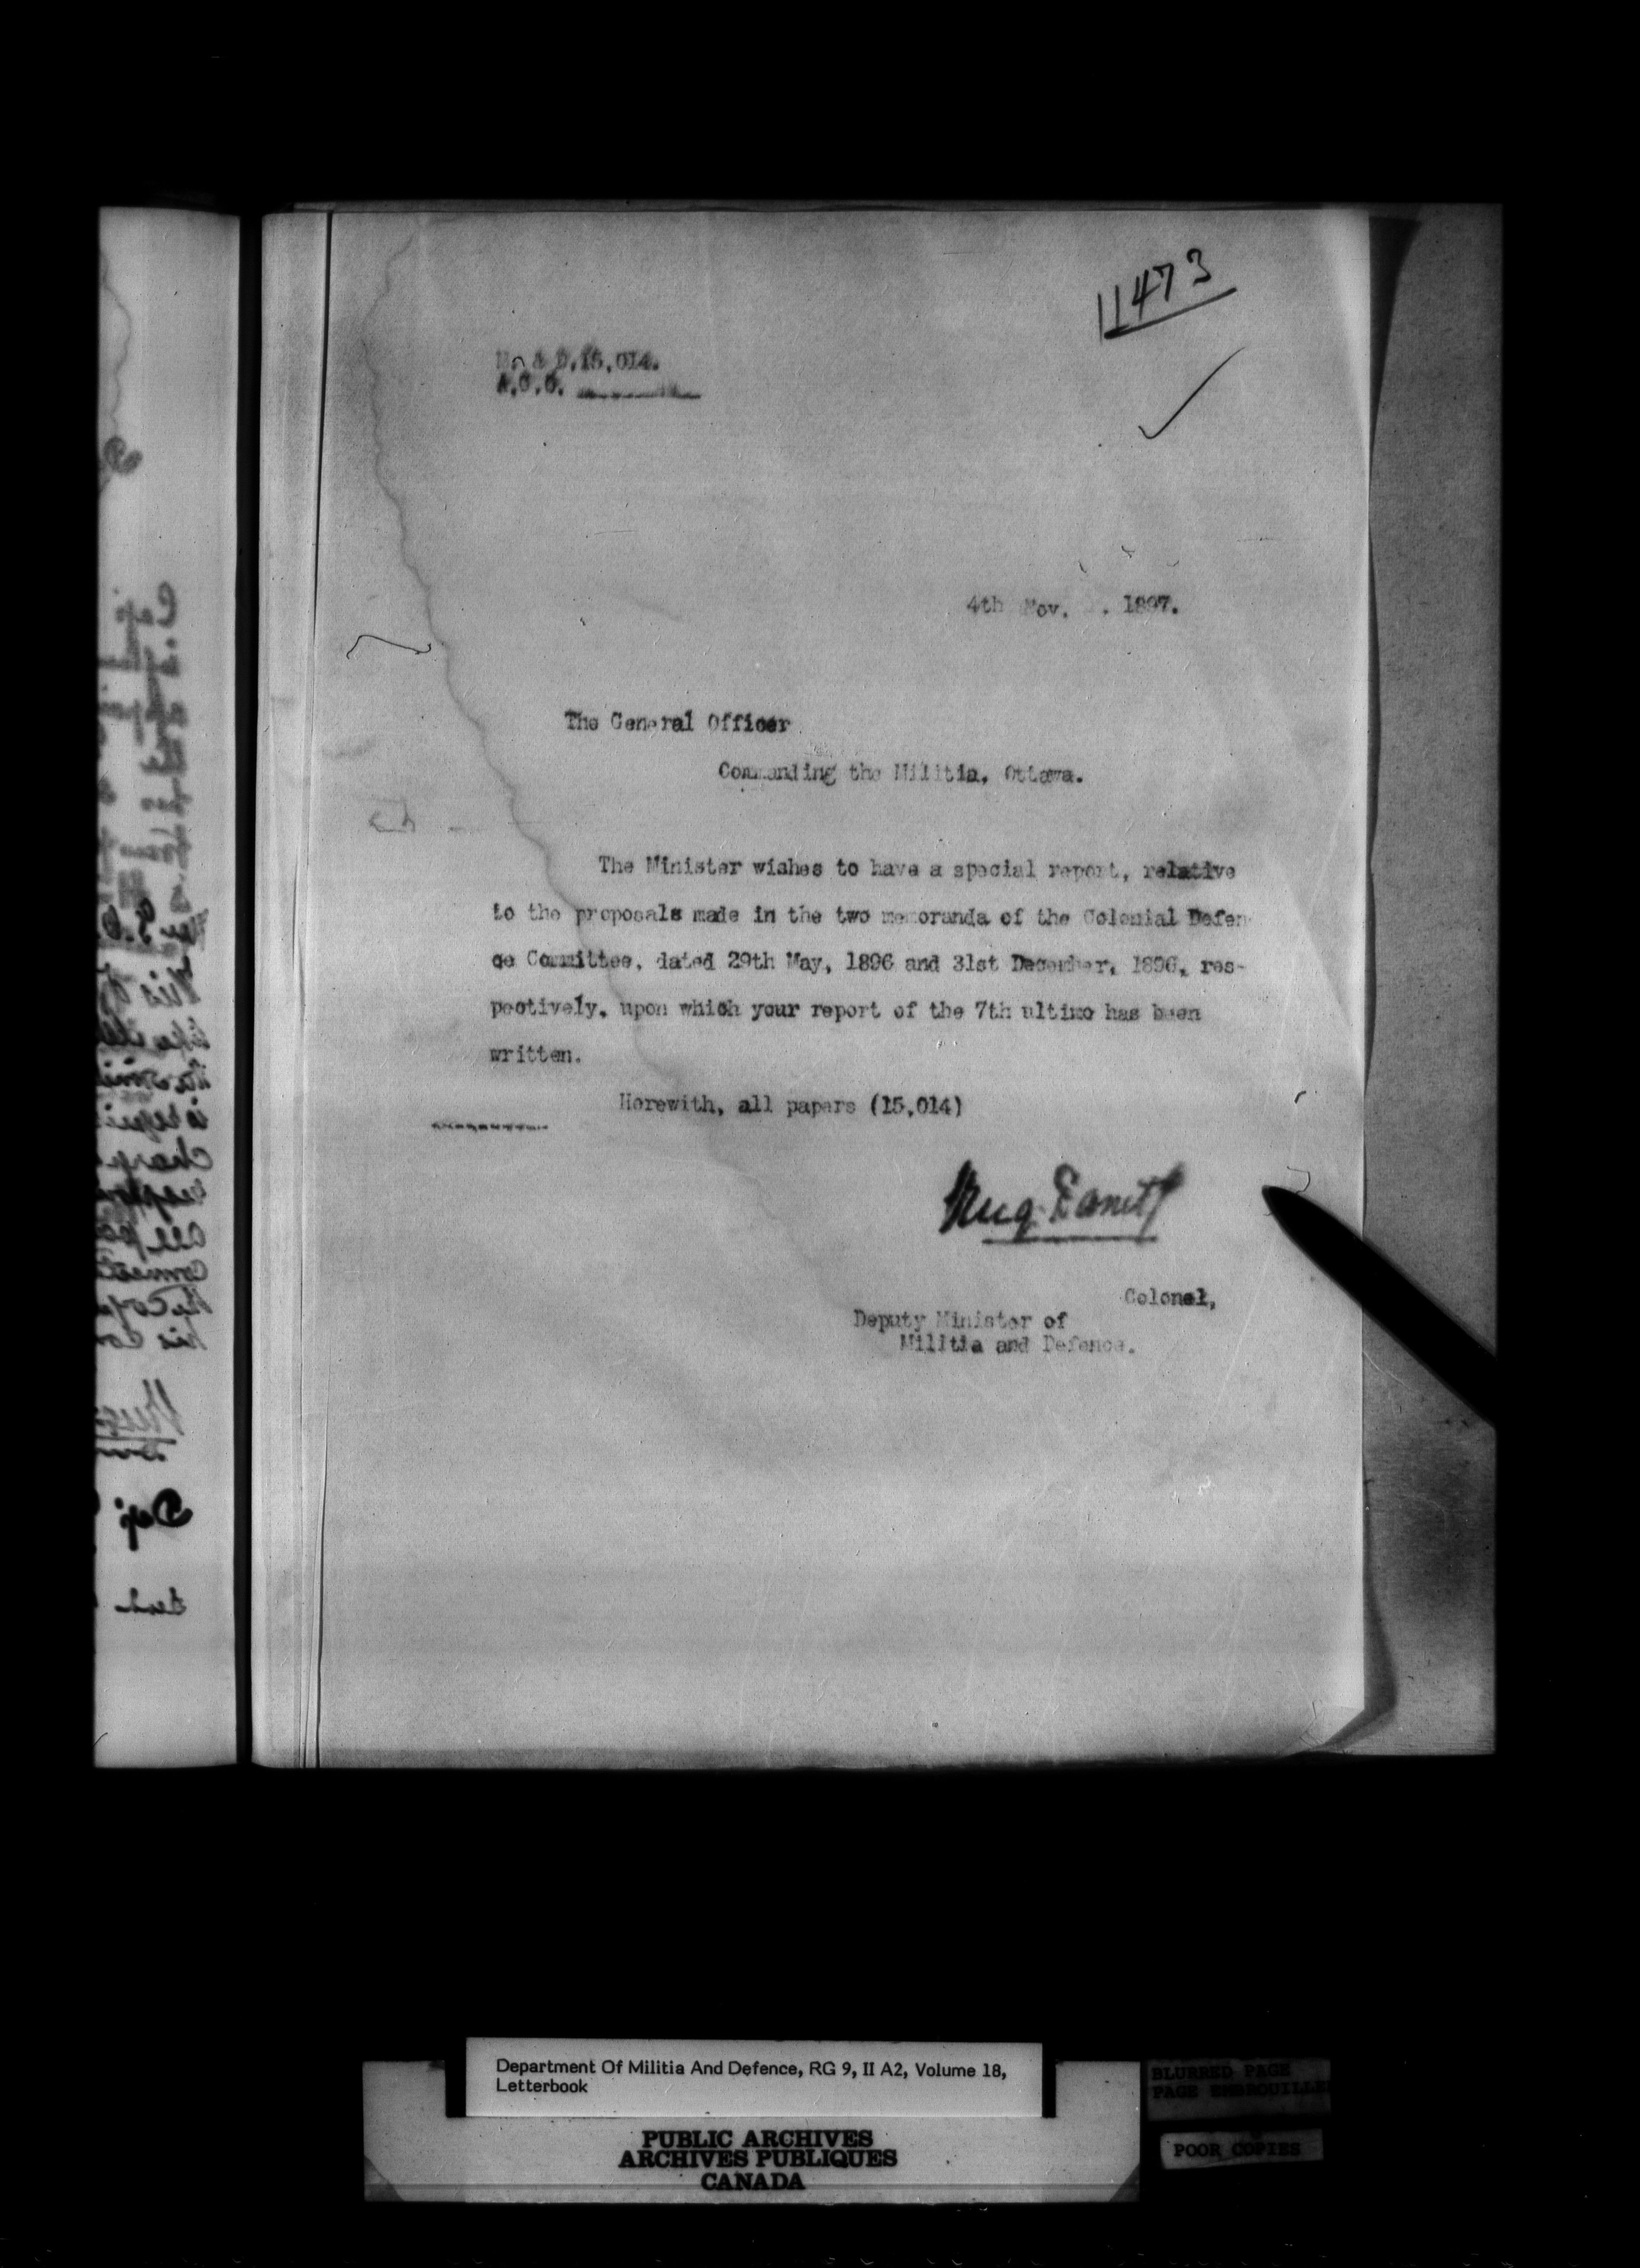 11473
M. & D. 15,014.
A.G.O.
4th Nov. 1897.
The General Officer
Commanding the Militia, Ottawa.
The Minister wishes to have a special report, relative
to the proposals made in the two memoranda of the Colonial Defen
ce Committee, dated 29th May, 1896 and 31st December, 1896, res-
pectively, upon which your report of the 7th ultimo has been
written.
Herewith, all papers (15,014)
Colonel,
Deputy Minister of
Militia and Defence.
Department Of Militia And Defence, RG 9, II A2, Volume 18,
Letterbook
PUBLIC ARCHIVES
ARCHIVES PUBLIQUES
CANADA
BLURRED PAGE
PAGE EMBROUILLE
POOR COPIES